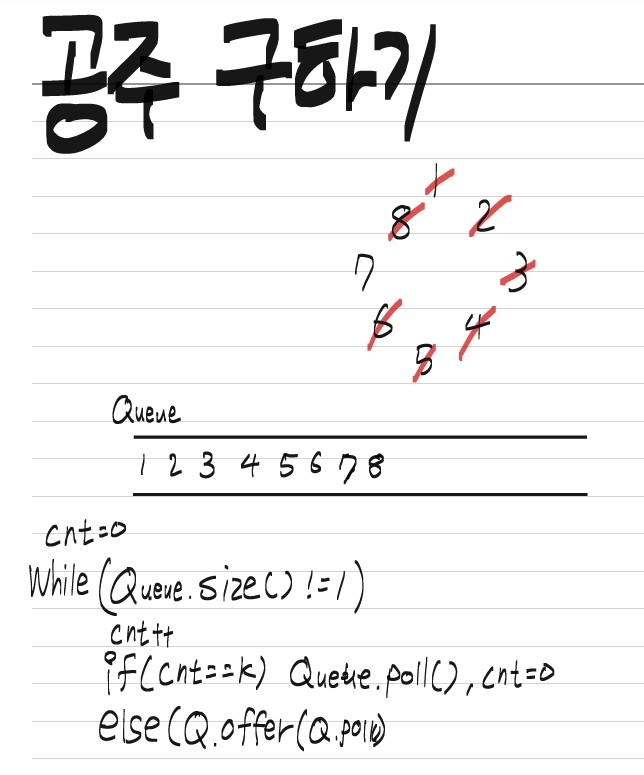 공주 구하기
1
8 2
7 3
6 4
5
Queue
1 2 3 4 5 6 7 8
cnt=0
While(Queue.size() !=1)
cnt++
if(cnt==k) Queue.poll(), cnt=0
else(Q.offer(Q.poll()